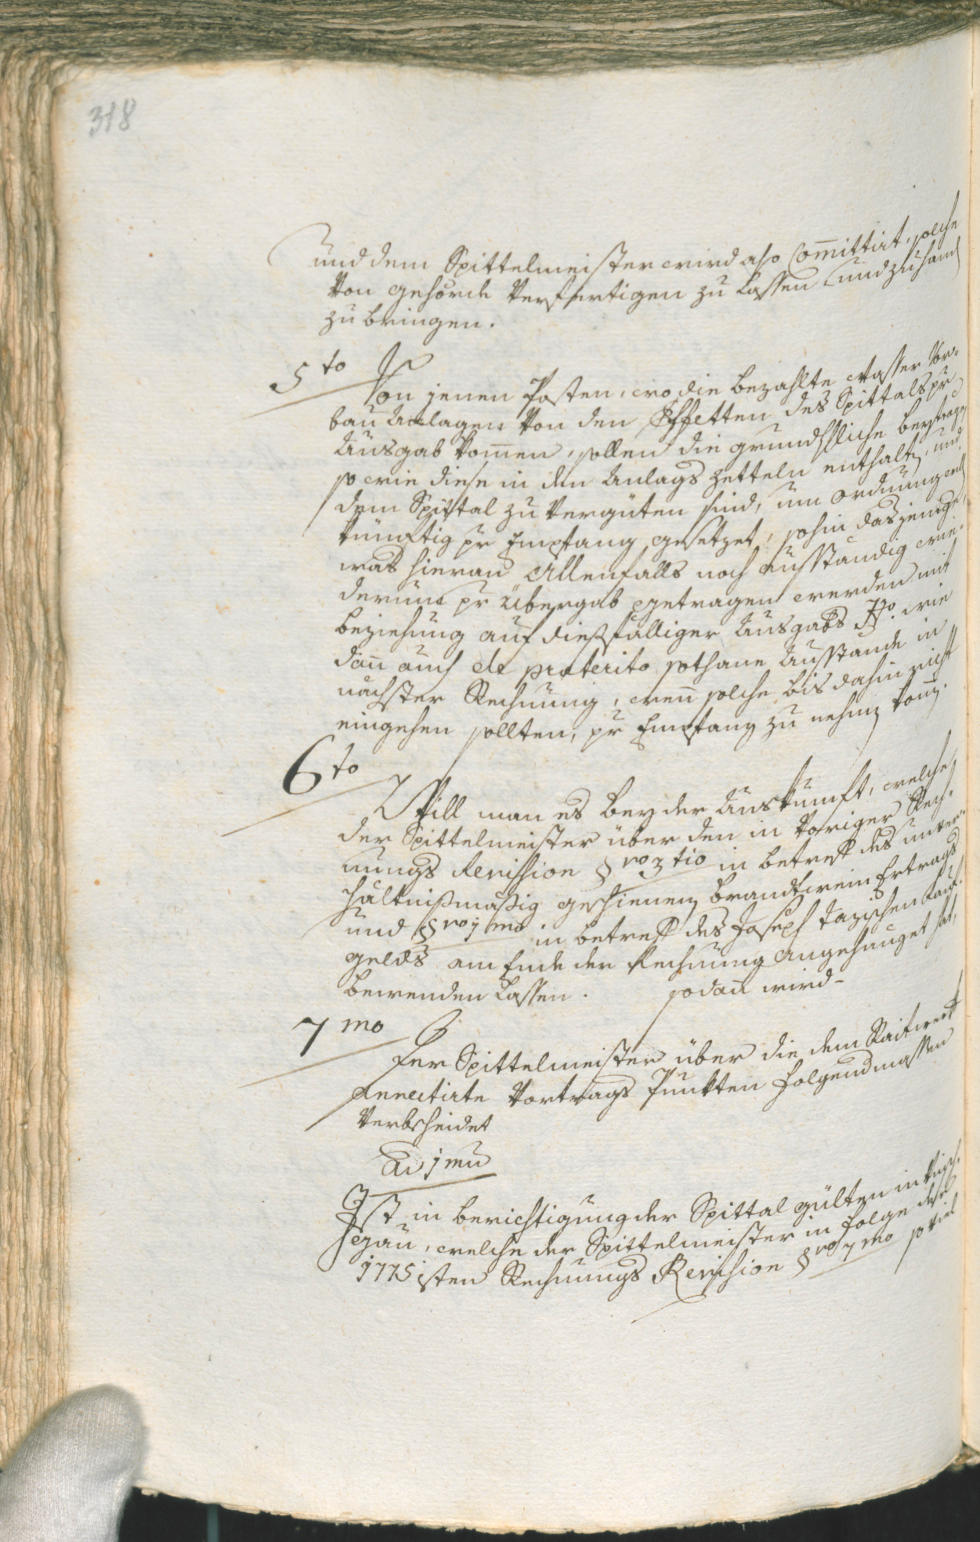 318
und dem Spittelmeister wird also Com̄ittirt, solche
von gehörde verfertigen zu lassen und zuhand
zu bringen.
5to
Von jenen Posten, wo die bezahlte Wasser Ver-
bau Anlagen von den Effetten des Spittals pr
Ausgab kom̄en, sollen die grundsliche beyträge
so wie diese in den Anlags zetteln enthalten, und
dem Spital zu vergüten sind, um ordnung
künftig pr Empfang gesetzet, sohin dasjenige
was hieran Allenfalls noch ausständig wie-
derum pr Übergab getragen werden mit
beziehung auf dießfälliger Ausgabs No. wie
dan̄ auch de praeterito sothane Ausstände in
nächster Rechnung, wen̄ solche bis dahin nicht
eingehen sollten, pr Empfang zu nehmen kom̄en.
6to
Will man es bey der Auskunft, welche
der Spittelmeister über den in voriger Rech-
nungs Revission §vo 3tio in betreff des unver-
hältnißmäßig geschienen brandtwein Ertrags
und §vo 7mo in betreff des Joseph Kauf-
gelds am Ende der Rechnung angehänget hat,
bewenden lassen. sodan̄ wird-
7mo
Der Spittelmeister über die dem Raitwerk
annectirte Vortrags Punkten folgendmassen
verbscheidet
Ad 1mu
Ist in berichtigung der Spittal gülten im Vinsch-
gau, welche der Spittelmeister in folge der
1775isten Rechnungs Revision §vo 7mo so viel